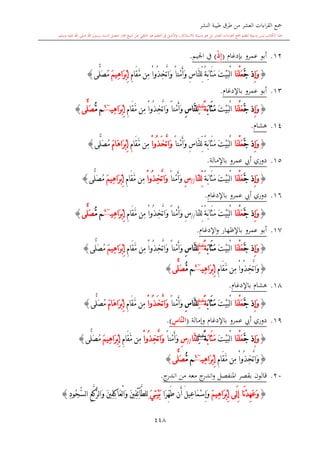 جمع القراءات العشر من طرق طيبة النشر
١٢. أبو عمرو بإدغام (إذ) في الجيم.
﴿ وَإِذْ جَّعَلْنَا ٱلْبَيْتَ مَثَابَةً لِّلنَّاسِ وَأَمْنًا وَٱتَّخِذُوا۟ مِن مَّقَامِ إِبْرَٰهِيمَ مُصَلًّى ﴾
١٣. أبو عمرو بالإدغام.
﴿ وَإِذْ جَّعَلْنَا ٱلْبَيْتَ مَثَابَةً لِّلنَّاسِ وَأَمْنًا وَٱتَّخِذُوا۟ مِن مَّقَامِ إِبْرَٰهِيم مُّصَلًّى ﴾
١٤. هشام.
﴿ وَإِذْ جَّعَلْنَا ٱلْبَيْتَ مَثَابَةً لِّلنَّاسِ وَأَمْنًا وَٱتَّخَذُوا۟ مِن مَّقَامِ إِبْرَاهَامَ مُصَلًّى ﴾
١٥. دوري أبي عمرو بالإمالة.
﴿ وَإِذْ جَّعَلْنَا ٱلْبَيْتَ مَثَابَةً لِّلنَّاسِ وَأَمْنًا وَٱتَّخِذُوا۟ مِن مَّقَامِ إِبْرَٰهِيمَ مُصَلًّى ﴾
١٦. دوري أبي عمرو بالإدغام.
﴿ وَإِذْ جَّعَلْنَا ٱلْبَيْتَ مَثَابَةً لِّلنَّاسِ وَأَمْنًا وَٱتَّخِذُوا۟ مِن مَّقَامِ إِبْرَٰهِيم مُّصَلًّى ﴾
١٧. أبو عمرو بالإظهار والإدغام.
﴿ وَإِذْ جَّعَلْنَا ٱلْبَيْتَ مَثَابَةً لِّلنَّاسِ وَأَمْنًا وَٱتَّخِذُوا۟ مِن مَّقَامِ إِبْرَٰهِيمَ مُصَلًّى ﴾
﴿ وَٱتَّخِذُوا۟ مِن مَّقَامِ إِبْرَٰهِيم مُّصَلًّى ﴾
١٨. هشام بالإدغام.
﴿ وَإِذْ جَّعَلْنَا ٱلْبَيْتَ مَثَابَةً لِّلنَّاسِ وَأَمْنًا وَٱتَّخَذُوا۟ مِن مَّقَامِ إِبْرَاهَامَ مُصَلًّى ﴾
١٩. دوري أبي عمرو بالإدغام وإمالة (النَّاس).
﴿ وَإِذْ جَّعَلْنَا ٱلْبَيْتَ مَثَابَةً لِّلنَّاسِ وَأَمْنًا وَٱتَّخِذُوا۟ مِن مَّقَامِ إِبْرَٰهِيمَ مُصَلًّى ﴾
﴿ وَٱتَّخِذُوا۟ مِن مَّقَامِ إِبْرَٰهِيم مُّصَلًّى ﴾
٢٠. قالون بقصر المنفصل واندرج معه من اندرج.
﴿ وَعَهِدْنَآ إِلَىٰٓ إِبْرَٰهِيمَ وَإِسْمَٰعِيلَ أَن طَهِّرَا بَيْتِيَ لِلطَّآئِفِينَ وَٱلْعَٰكِفِينَ وَٱلرُّكَّعِ ٱلسُّجُودِ ﴾
٤٤٨